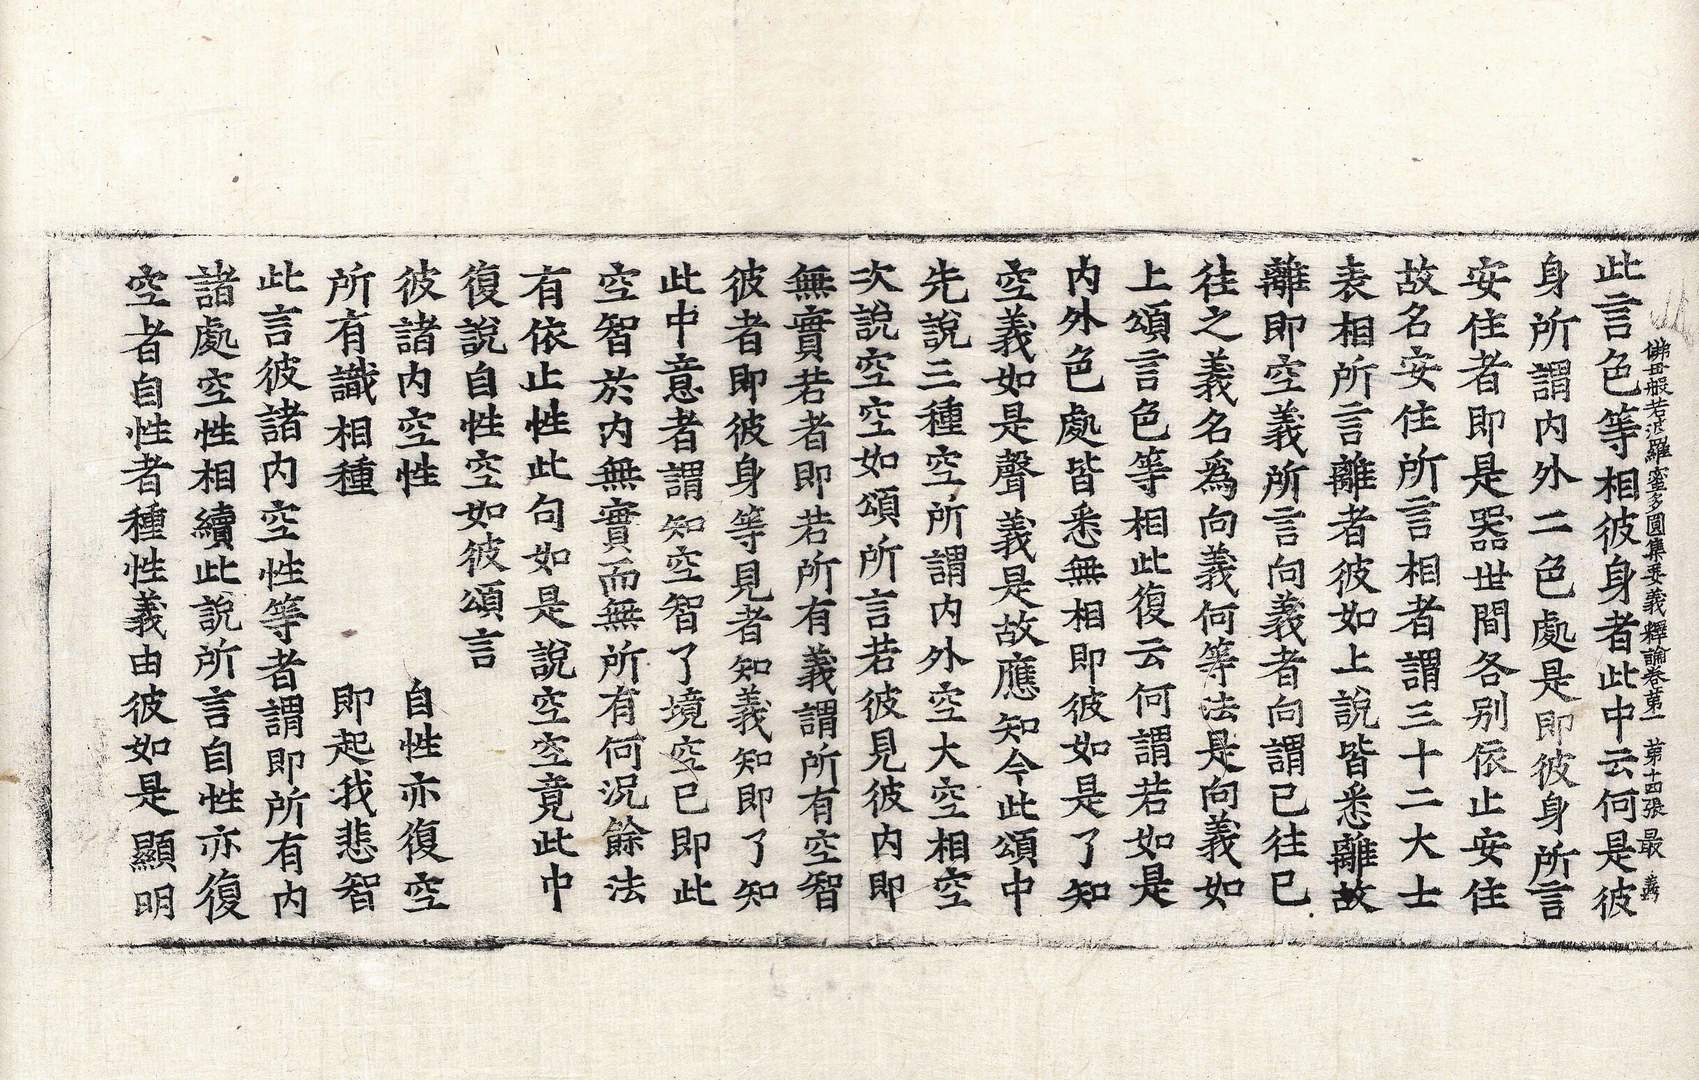 佛母般若波羅蜜多圓集要義釋論卷第一 第十四張 最
此言色等相彼身者此中云何是彼
身所謂內外二色處是即彼身所言
安住者即是器世間各別依止安住
故名安住所言相者謂三十二大士
表相所言離者彼如上說皆悉離故
離即空義所言向義者向謂已往已
往之義名爲向義何等法是向義如
上頌言色等相此復云何謂若如是
內外色處皆悉無相即彼如是了知
空義如是聲義是故應知今此頌中
先說三種空所謂內外空大空相空
次說空空如頌所言若彼見彼內即
無實若者即若所有義謂所有空智
彼者即彼身等見者知義知即了知
此中意者謂知空智了境空已即此
空智於內無實而無所有何況餘法
有依止性此句如是說空空竟此中
復說自性空如彼頌言
彼諸內空性 自性亦復空
所有識相種 即起我悲智
此言彼諸內空性等者謂即所有內
諸處空性相續此說所言自性亦復
空者自性者種性義由彼如是顯明